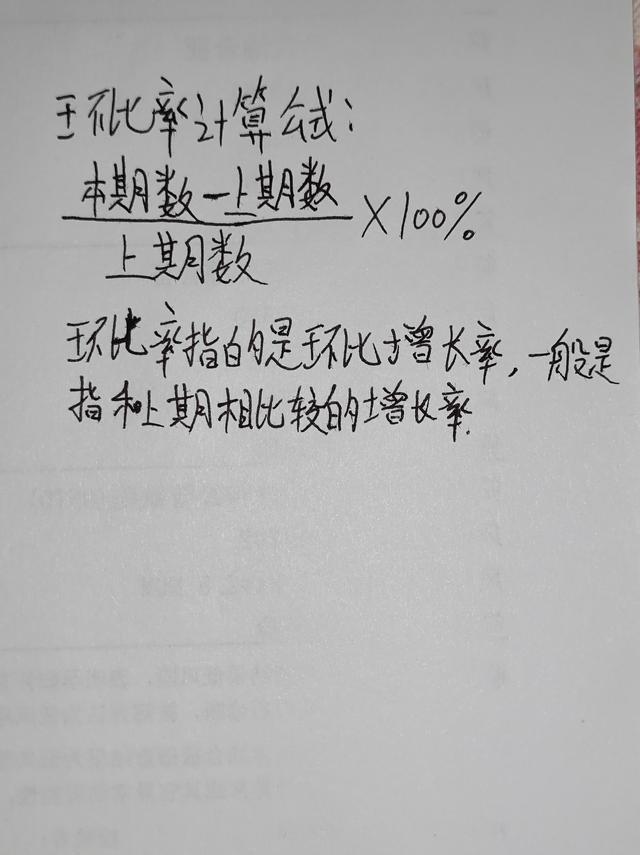 环比率计算公式：
本期数-上期数
上期数
×100%
环比率指的是环比增长率，一般是
指和上期相比较的增长率.